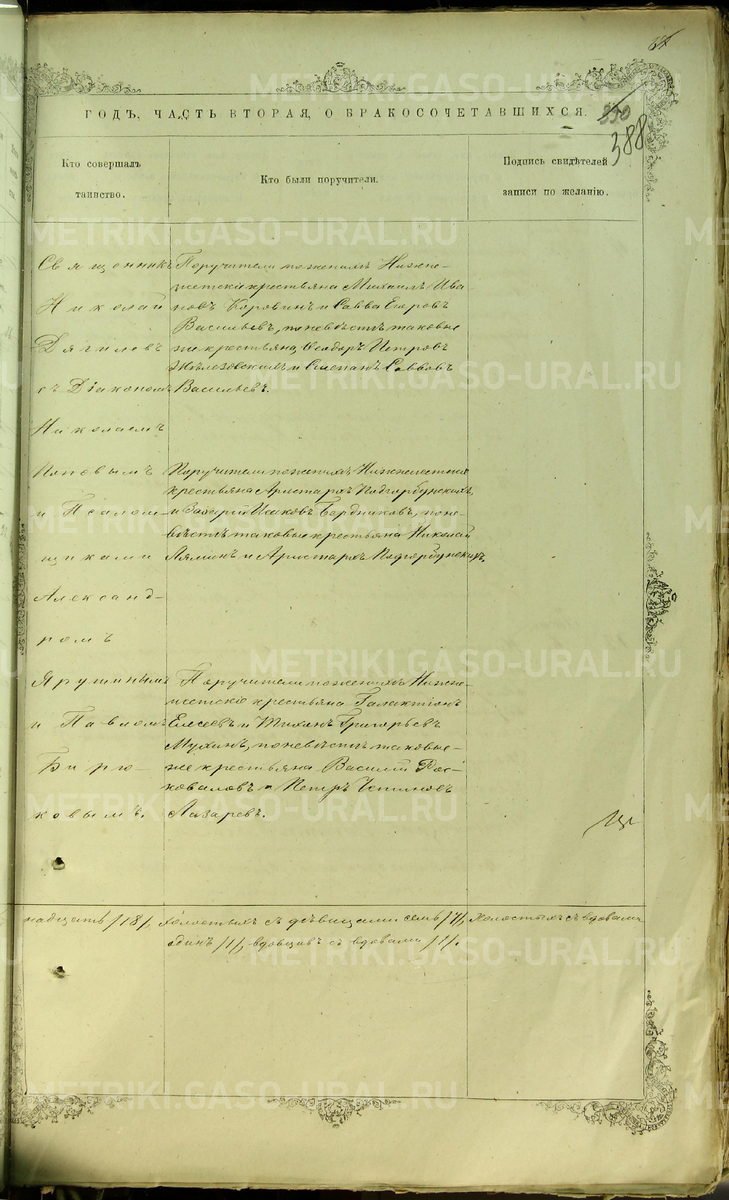 388
ГОДЪ, ЧАСТЬ ВТОРАЯ, О БРАКОСОЧЕТАВШИХСЯ.
Кто совершалъ
таинство.
Кто были поручители.
Подпись свидѣтелей
записи по желанію.
Священникъ
Николай
Дягилевъ
съ Діакономъ
Николаемъ
Поповымъ
и Псалом-
щиками
Александ-
ромъ
Ярушинымъ
и Павломъ
Бирю-
ковымъ.
Поручители по женихѣ Нижне-
крестьяне Михаилъ Ива
новъ Коровинъ и Савва Егоровъ
Васильевъ, по невѣстѣ таковые
же крестьяне, Ѳеодоръ Петровъ
и Степанъ Саввовъ
Васильевъ.
Поручители по женихѣ
крестьяне Аристархъ Подгорбунскихъ
и Захарій Исаковъ Бердниковъ, по не-
вѣстѣ таковые крестьяне Николай
Лялинъ и Аристархъ Подгорбунскихъ.
Поручители по женихѣ Нижне-
крестьяне Галактіонъ
Елисеевъ и Тихонъ Григорьевъ
Мухинъ, по невѣстѣ таковые-
же крестьяне Василій
и Петръ
Лазаревъ.
надцать /18/,
холостыхъ съ дѣвицами семь /7/, холостыхъ съ вдовами
одинъ /1/, вдовцовъ съ вдовами /1/.
METRIKI.GASO-URAL.RU